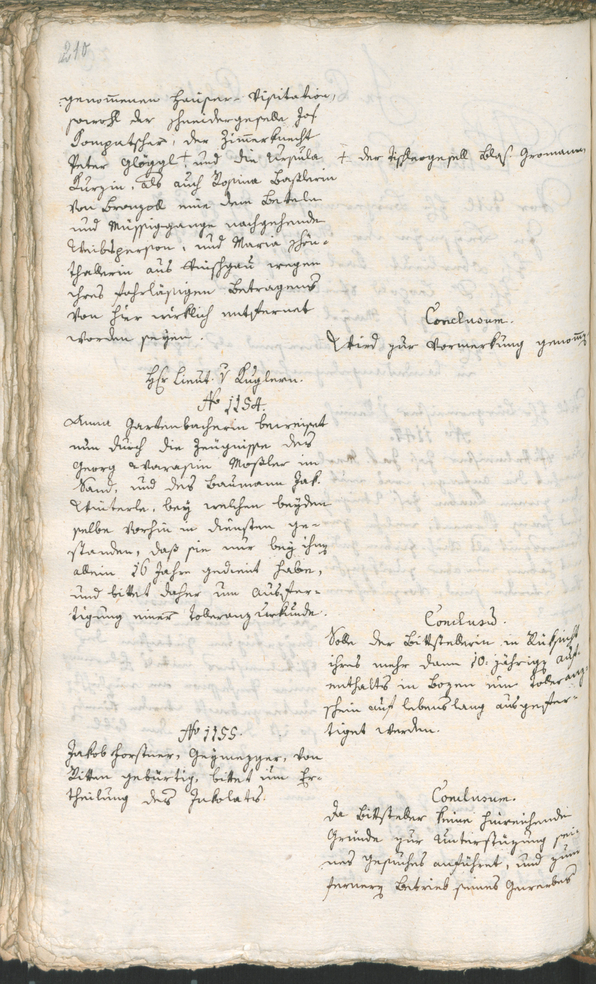 210
genommenen Häuser-Visitation,
sowohl der Schneidergeselle Jos
Compatscher, der Zimmerknecht
Peter Glöggl † und die Ursula
† der Tischlergesell Blas Gromann,
Kurzin, als auch Rosina Baßlerin
von Bronzoll eine dem Betteln
und Müssiggange nachgehende
Weibsperson, und Maria
aus Vinschgau wegen
ihres fahrläßigen Betragens
von hier wirklich entfernet
worden seyen.
Conclusum.
Wird zur Vormerkung genomm
Hr Lieut. v Kuglern.
No 1154.
Anna Gartenbacherin beweiset
nun durch die Zeugnisse des
Georg Moßler im
Sand, und des Baumann Jak.
Winterle, bey welchen beyden
selbe vorhin in Diensten ge-
standen, daß sie nur bey ihm
allein 16 Jahre gedient habe,
und bittet daher um Ausfer-
tigung einer Toleranzurkunde.
Conclusu.
Solle der Bittstellerin in Rüksicht
ihres mehr dann 10: jährigen Auf-
enthalts in Bozen ein Toleranz-
schein auf lebenslang ausgefer-
tiget werden.
No 1155.
Jakob Forstner, Geymezger, von
Ritten gebürtig, bittet um Er-
theilung des Inkolats.
Conclusum.
Da Bittsteller keine hinreichende
Gründe zur Unterstüzung sei-
nes Gesuches anführet, und zum
fernern Betrieb seines Gewerbes